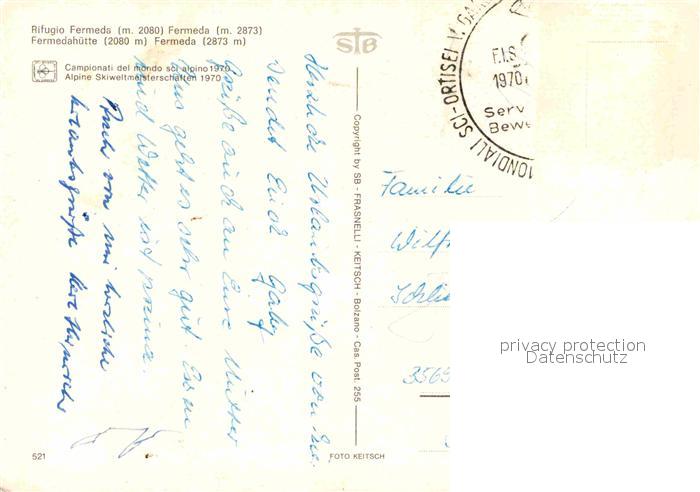 Rifugio Fermeda (m. 2080) Fermeda (m. 2873)
Fermedahütte (2080 m) Fermeda (2873 m)
Campionati del mondo sci alpino 1970
Alpine Skiweltmeisterschaften 1970
STB
Herzliche Urlaubsgrüße von
sendet Euch Gaby
Grüße auch an Eure Mutter
Uns geht es sehr gut. Essen
und Wetter sind prima.
Auch von mir herzliche
Urlaubsgrüße
Copyright by SB - FRASNELLI - KEITSCH - Bolzano - Cas. Post. 255
MONDIALI SCI-ORTISEI V. GA
F.I.S.
1970
Serv
Bewe
Familie
Wilf
Schli
3565
privacy protection
Datenschutz
521
FOTO KEITSCH